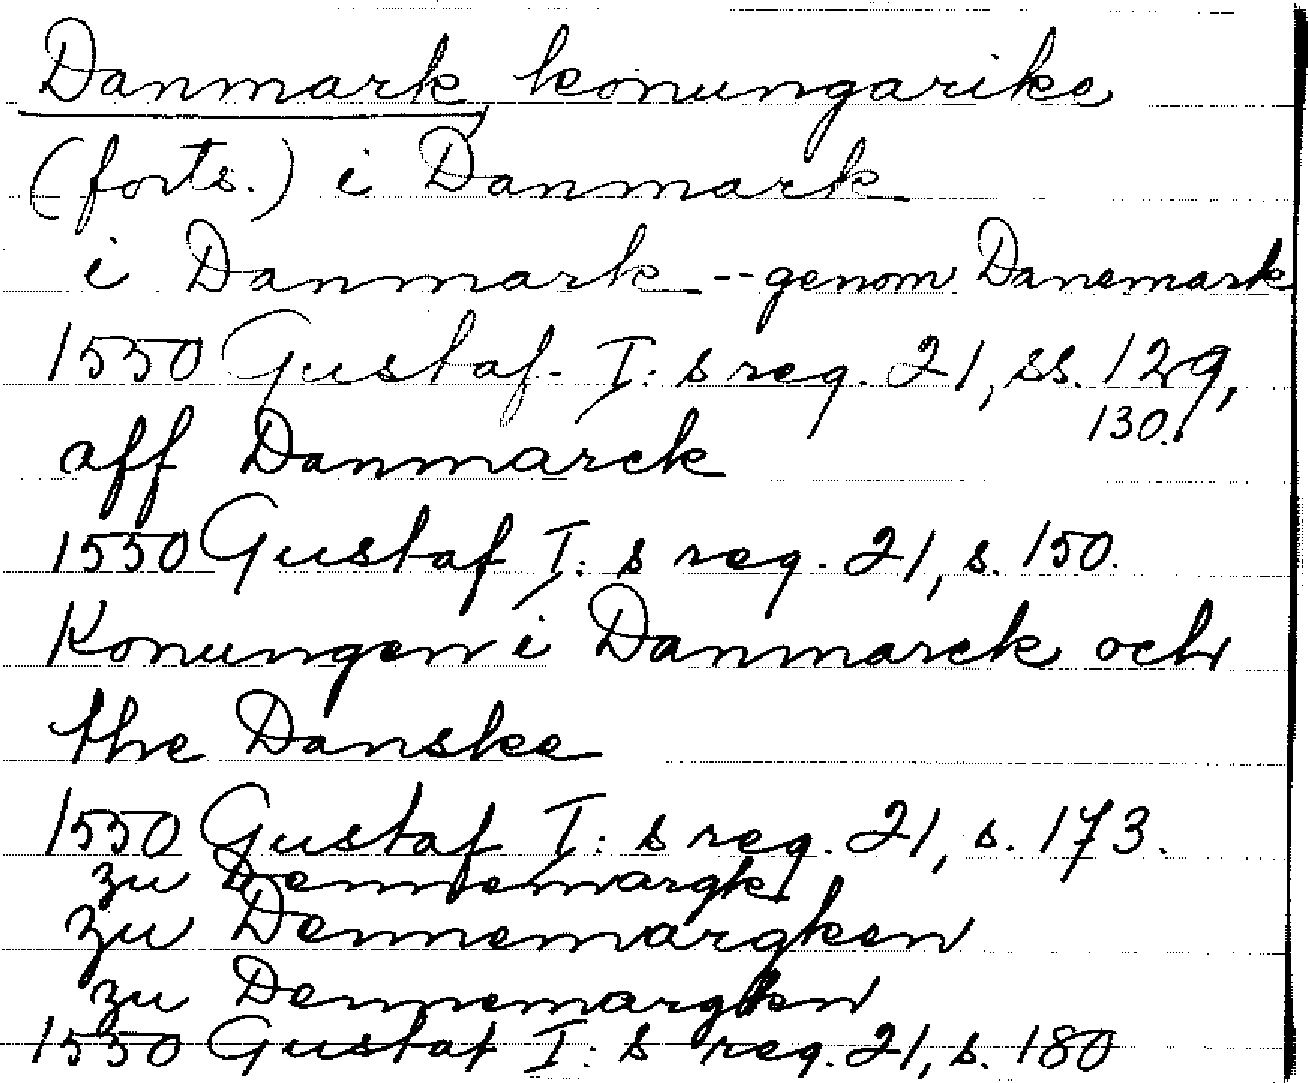 Danmark, konungarike
(forts.) i Danmark
i Danmark -- genom Danemark
1550 Gustaf I:s reg. 21, ss. 129,
130.
aff Danmarck
1550 Gustaf I:s reg. 21, s. 150.
Konungen i Danmarck och
the Danske
1550 Gustaf I:s reg. 21, s. 173.
zu Dennemargk
zu Dennemargken
zu Dennemargken
1550 Gustaf I:s reg. 21, s. 180